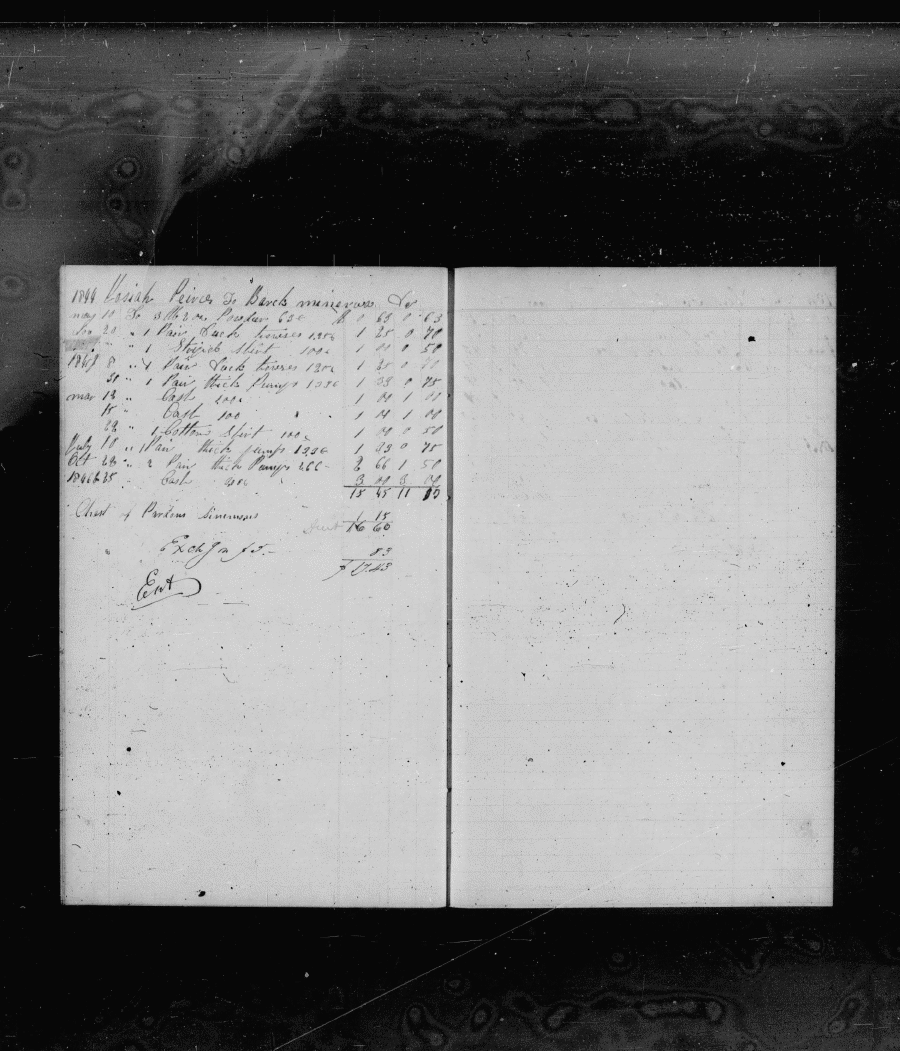 1844 Josiah Peirce To Barck minerva Dr
may 10 To 3 lb 2 oz Powder 63c $ 0 63 0 63
20 " 1 Pair Duck trouses 125c 1 25 0 70
" " 1 Striped Shirt 100c 1 00 0 50
1845 8 " 1 Pair Duck trouses 125c 1 25 0
30 " 1 Pair thick Pumps 133c 1 33 0 75
mar 13 " Cash 100c 1 00 1 00
15 " Cash 100 " " 1 00 1 00
22 1 Cotton Shirt 100c 1 00 0 50
July 10 " 1 Pair thick pumps 133c 1 33 0 75
Oct 28 " 2 Pair thick Pumps 266 2 66 1 50
1846 25 Cash 300 3 00 3 00
15 45 11
Chest of Perkins Simmons 1 15
16 60
" Exchg on 5 - 83
$ 17.43
Ent